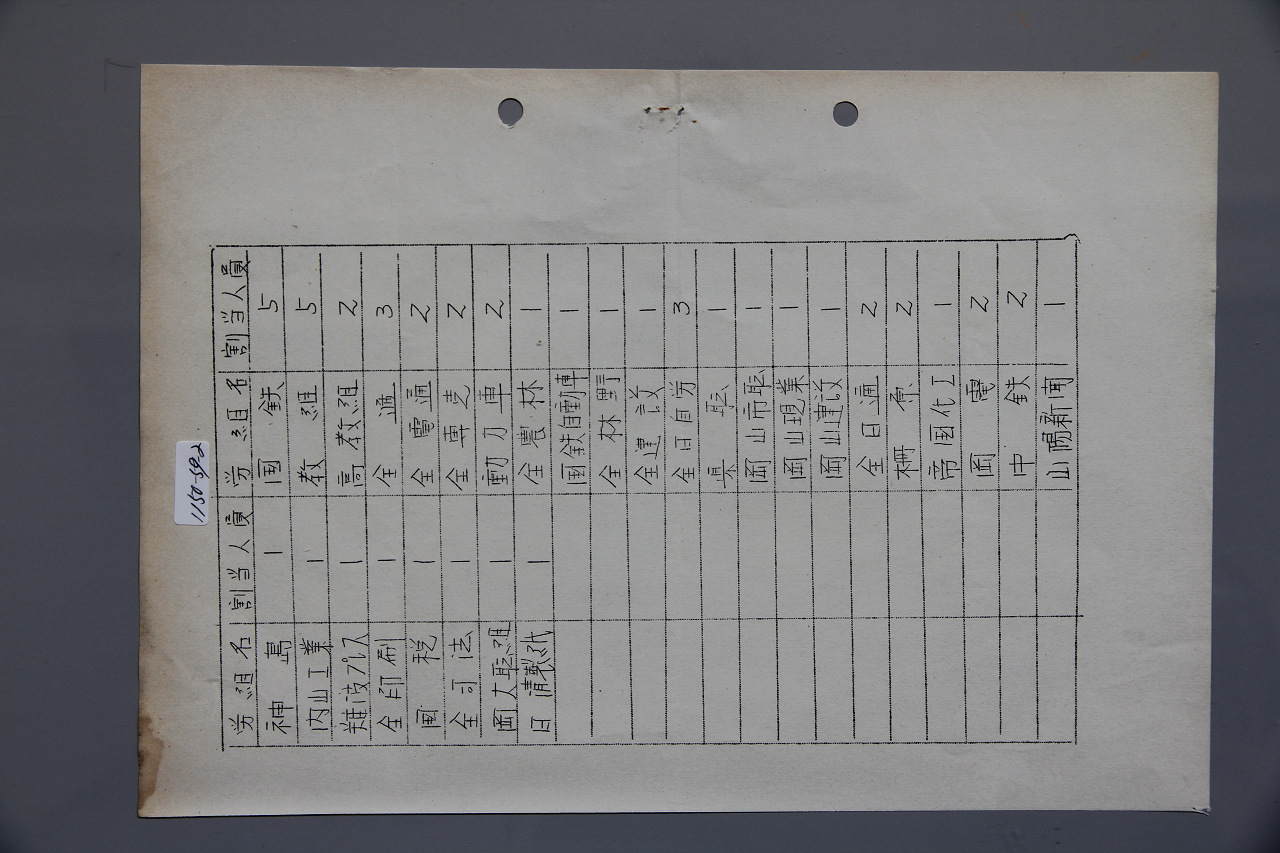 労組名 割当人員 労組名 割当人員
神島 1 国鉄 5
内山工業 1 教組 5
難波プレス 1 高教組 2
全印刷 1 全逓 3
国税 1 全電通 2
全司法 1 全専売 2
岡大耺組 1 動力車 2
日清製紙 1 全農林 1
国鉄自動車 1
全林野 1
全建設 1
全日自労 3
県耺 1
岡山市耺 1
岡山現業 1
岡山建設 1
全日通 2
柵原 2
帝国化工 1
岡電 2
中鉄 2
山陽新聞 1